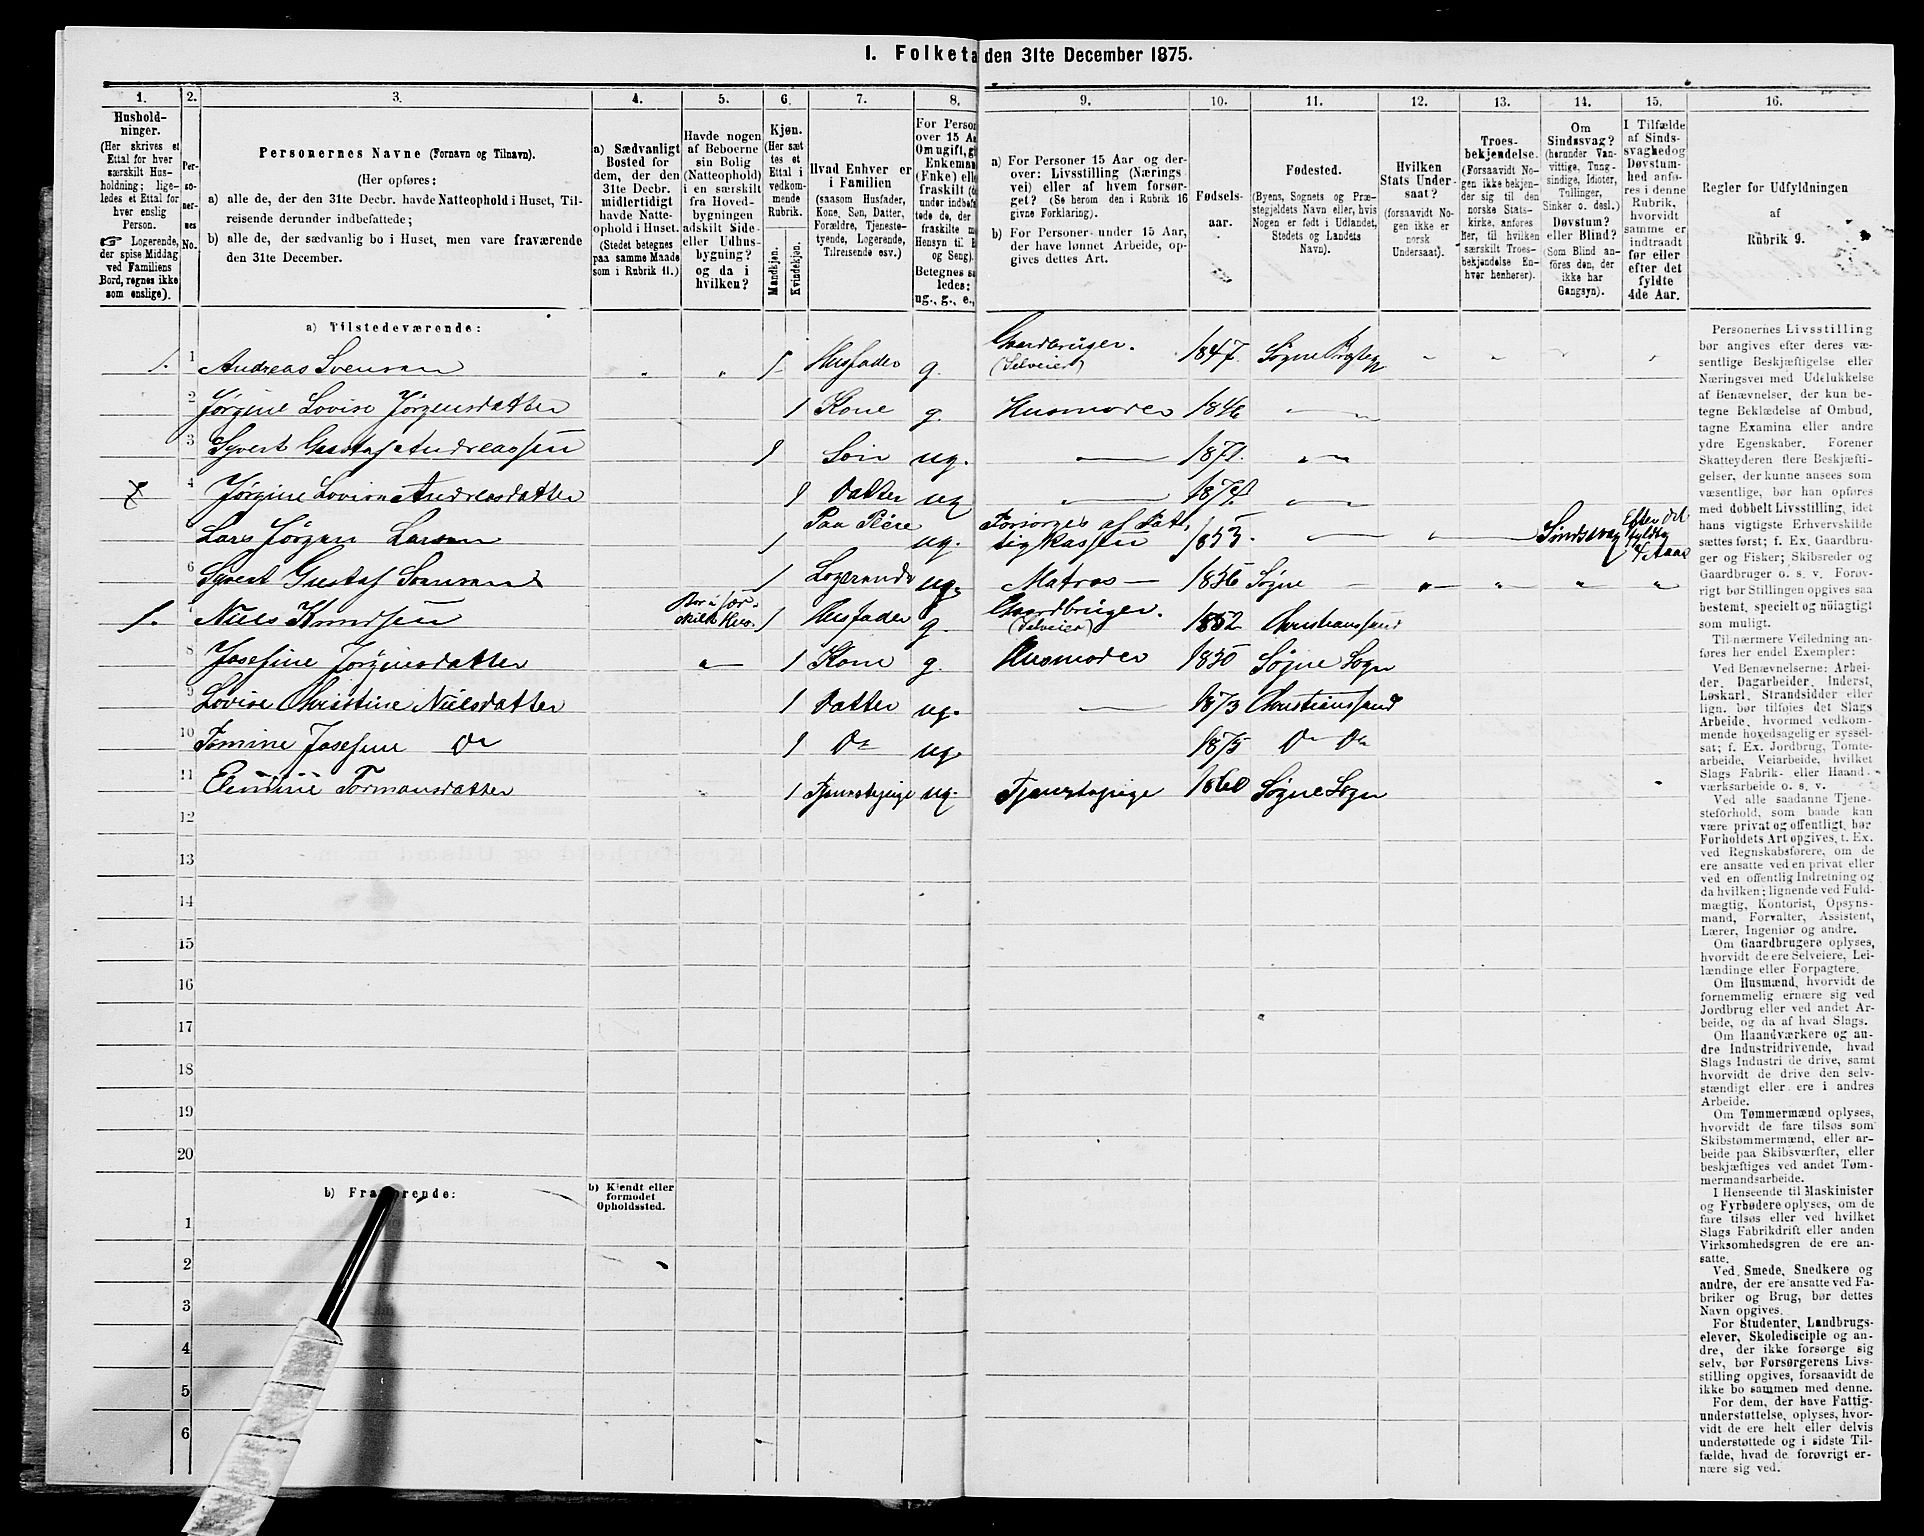 I. Folketæ den 31te December 1875.
1. 2. 3. 4. 5. 6. 7. 8. 9. 10. 11. 12. 13. 14. 15. 16.
Hushold-
ninger.
(Her skrives et
Ettal for hver
særskilt Hus-
holdning; lige-
ledes et Ettal for
hver enslig
Person.
☞ Logerende,
der spise Middag
ved Familiens
Bord, regnes ikke
som enslige).
Per-
so-
ner-
nes
No.
Personernes Navne (Fornavn og Tilnavn).
(Her opføres:
a) alle de, der den 31te Decbr. havde Natteophold i Huset, Til-
reisende derunder indbefattede;
b) alle de, der sædvanlig bo i Huset, men vare fraværende
den 31te December.
a) Sædvanligt
Bosted for
dem, der den
31te Decbr.
midlertidigt
havde Natte-
ophold i Huset.
(Stedet betegnes
paa samme Maade
som i Rubrik 11.)
Havde nogen
af Beboerne
sin Bolig
(Natteophold)
i en særskilt
fra Hoved-
bygningen
adskilt Side-
eller Udhus-
bygning?
og da i
hvilken?
Kjøn.
(Her sæt
tes et
Ettal i
vedkom-
mende
Rubrik.
Mandkjøn.
Kvindekjøn.
Hvad Enhver er
i Familien
(saasom Husfader,
Kone, Søn, Datter,
Forældre, Tjeneste-
tyende, Logerende,
Tilreisende osv.)
For Person
over 15 Aa
Om ugift, gi
Enkemand
(Enke) elle
fraskilt (
under indbef
tede de, der
fraskilte m
Hensyn til B
og Seng).
Betegnes saa
ledes:
ug., g., e.,
a) For Personer 15 Aar og der-
over: Livsstilling (Nærings-
vei) eller af hvem forsør-
get? (Se herom den i Rubrik 16
givne Forklaring).
b) For Personer under 15 Aar,
der have lønnet Arbeide, op-
gives dettes Art.
Fødsels-
aar.
Fødested.
(Byens, Sognets og Præ-
stegjeldets Navn eller, hvis
Nogen er født i Udlandet,
Stedets og Landets
Navn).
Hvilken
Stats Under-
saat?
(forsaavidt No-
gen ikke er
norsk
Undersaat).
Troes-
bekjendelse.
(Forsaavidt No-
gen ikke bekjen-
der sig til den
norske Stats-
kirke, anføres
her, til hvilken
særskilt Troes-
bekjendelse En-
hver henhører).
Om
Sindssvag?
(herunder Van-
vittige, Tung-
sindige, Idioter,
Tullinger,
Sinker o. desl.)
Døvstum?
eller Blind?
(Som Blind an-
føres den, der
ikke har
Gangsyn).
I Tilfælde
af Sinds-
svaghed og
Døvstum-
hed anfø-
res i denne
Rubrik,
hvorvidt
samme er
indtraadt
før eller
efter det
fyldte
4de Aar.
Regler for Udfyldningen
af
Rubrik 9.
a) Tilstedeværende:
1. 1 Andreas Svensen " " 1 Husfader g. Gaardbruger. (Selveier) 1847. Søgne Præstegj " " " "
2 Jørgine Lovise Jørgensdatter 1 Kone g. Husmoder 1846 " "
3 Syvert Gustaf Andreassen 1 Søn ug. " 1871. " "
4 Jørgine Lovise Andreasdatter 1 Datter ug " 1874. " "
Lars Jørgen Larsen 1 Paa Pleie ug. Forsørges af Fattigkassen 1853. " " Sindssvag Efter det fyldte 4 Aar
6 Syvert Gustaf Svensen 1 Logerende ug. Matros 1856 Søgne " " " "
1. 7 Niels Knudsen Bor i særskilt Hus. 1 Husfader g. Gaardbruger. (Selveier) 1852 Christianssand
8 Josefine Jørginsdatter " 1 Kone g. Husmoder 1850 Søgne Sogn
9 Lovise Christine Nielsdatter 1 Datter ug. " 1873 Christianssand
10 Tomine Josefine Do 1 Do ug. 1875 Do Do
11 Elentine Tormansdatter 1 Tjenestepige ug. Tjenestepige 1860 Søgne Sogn
12
13
14
15
16
17
18
19
20
b) Fraværende:
b) Kjendt eller
formodet
Opholdssted.
1
2
3
4
5
6
Personernes Livsstilling
bør angives efter deres væ-
sentlige Beskjæftigelse eller
Næringsvei med Udelukkelse
af Benævnelser, der kun be-
tegne Beklædelse af Ombud,
tagne Examina eller andre
ydre Egenskaber. Forener
Skatteyderen flere Beskjæfti-
gelser, der kunne ansees som
væsentlige, bør han opføres
med dobbelt Livsstilling, idet
hans vigtigste Erhvervskilde
sættes først; f. Ex. Gaardbru-
ger og Fisker; Skibsreder og
Gaardbruger o. s. v. Forøv-
rigt bør Stillingen opgives saa
bestemt, specielt og nöiagtigt
som muligt.
Til nærmere Veiledning an-
føres her endel Exempler:
Ved Benævnelserne: Arbei-
der, Dagarbeider, Inderst,
Løskarl, Strandsidder eller
lign. bør tilføies det Slags
Arbeide, hvormed vedkom-
mende hovedsagelig er syssel-
sat; f. Ex. Jordbrug, Tomte-
arbeide, Veiarbeide, hvilket
Slags Fabrik- eller Haand-
værksarbeide o. s. v.
Ved alle saadanne Tjene-
steforhold, som baade kan
være privat og offentligt, bør
Forholdets Art opgives, t. Ex.
ved Regnskabsførere, om de
ere ansatte ved en privat eller
ved en offentlig Indretning og
da hvilken; lignende ved Fuld-
mægtig, Kontorist, Opsyns-
mand, Forvalter, Assistent,
Lærer, Ingeniør og andre.
Om Gaardbrugere oplyses,
hvorvidt de ere Selveiere, Lei-
lændinge eller Forpagtere.
Om Husmænd, hvorvidt de
fornemmelig ernære sig ved
Jordbrug eller ved andet Ar-
beide, og da af hvad Slags.
Om Haandværkere og an-
dre Industridrivende, hvad
Slags Industri de drive, samt
hvorvidt de drive den selv-
stændigt eller ere i andres
Arbeide.
Om Tømmermænd oplyses,
hvorvidt de fare tilsøs som
Skibstømmermænd, eller ar-
beide paa Skibsværfter, eller
beskjæftiges ved andet Tøm-
mermandsarbeide.
I Henseende til Maskinister
og Fyrbødere oplyses, om de
fare tilsøs eller ved hvilket
Slags Fabrikdrift eller anden
Virksomhedsgren de ere an-
satte.
Ved Smede, Snedkere og
andre, der ere ansatte ved Fa-
briker og Brug, bør dettes
Navn opgives.
For Studenter, Landbrugs-
elever, Skoledisciple og an-
dre, der ikke forsørge sig
selv, bør Forsørgerens Livs-
stilling opgives, forsaavidt de
ikke bo sammen med denne.
For dem, der have Fattig-
understøttelse, oplyses, hvor-
vidt de ere helt eller delvis
understøttede og i sidste Til-
fælde, hvad de forøvrigt er-
nære sig ved.